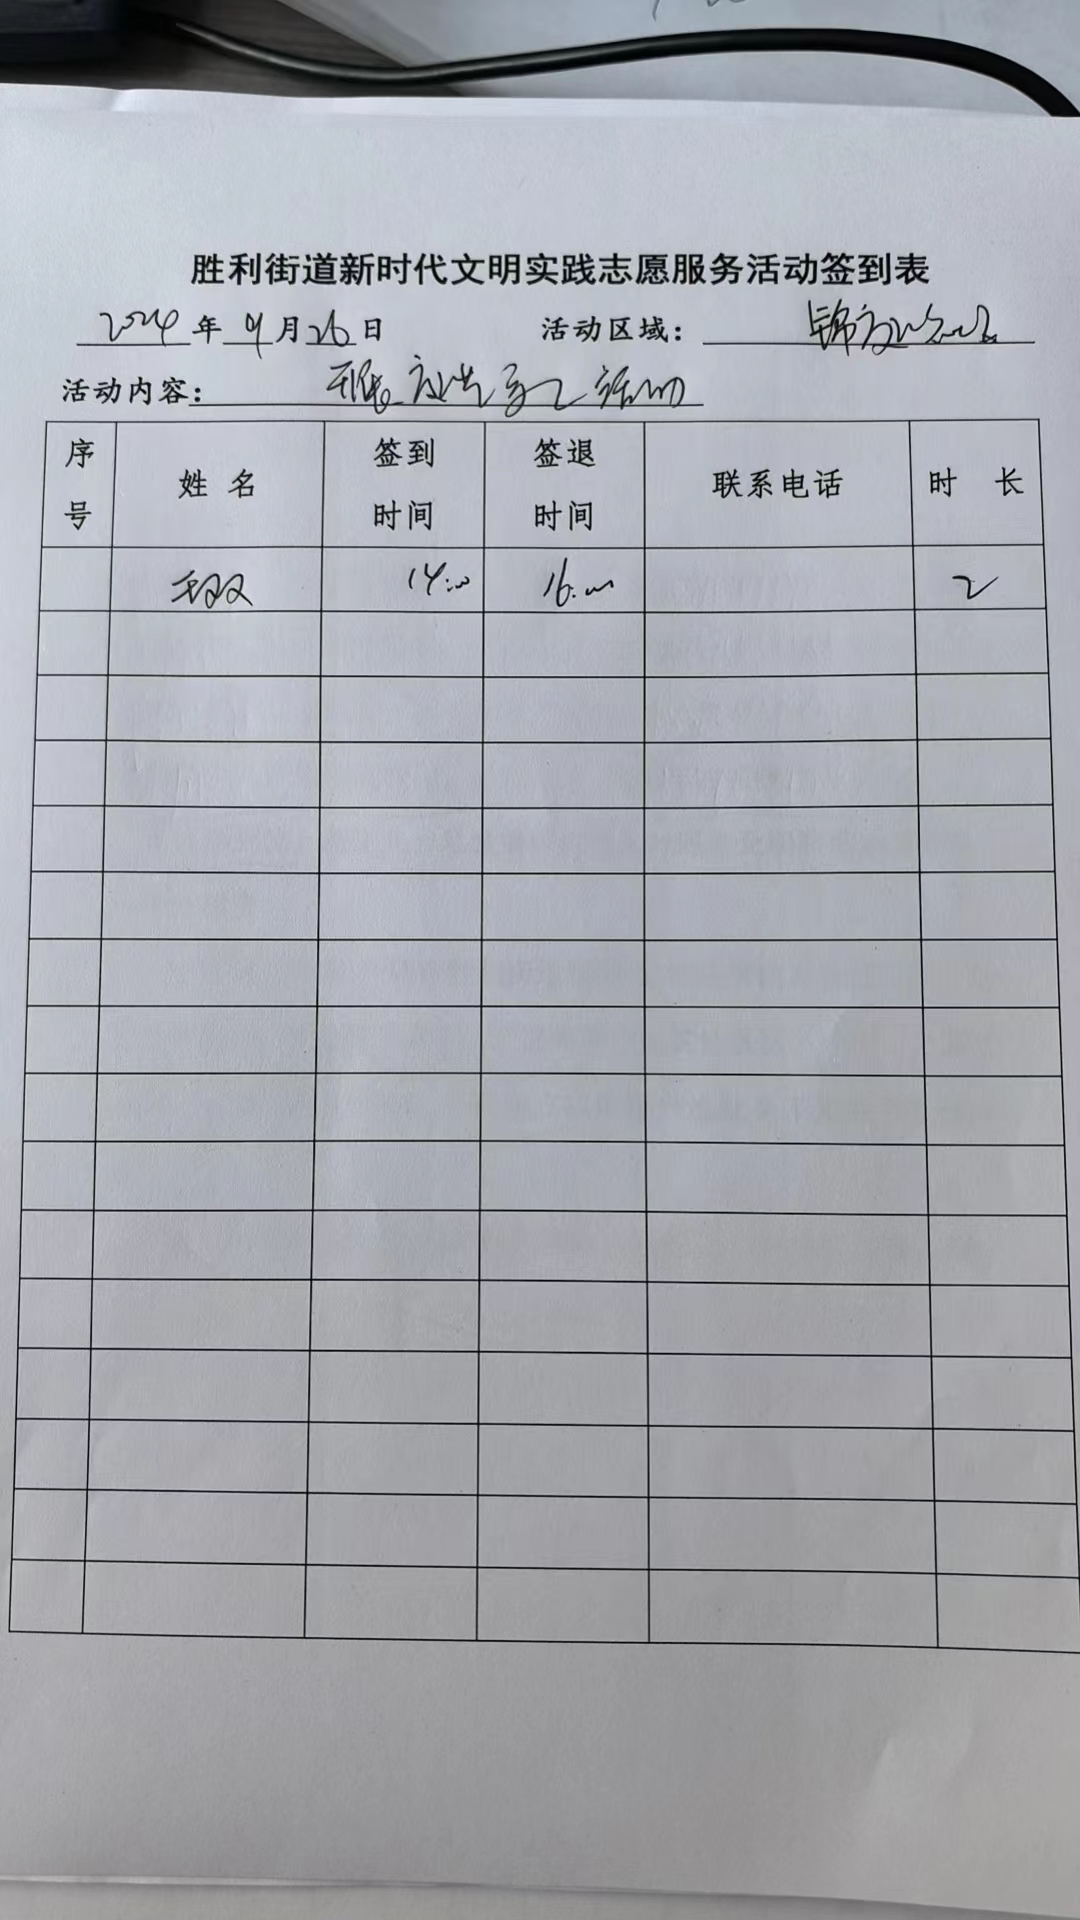 胜利街道新时代文明实践志愿服务活动签到表
2024年9月26日 活动区域：
活动内容： 活动
序号 姓名 签到时间 签退时间 联系电话 时长
14:00 16:00 2